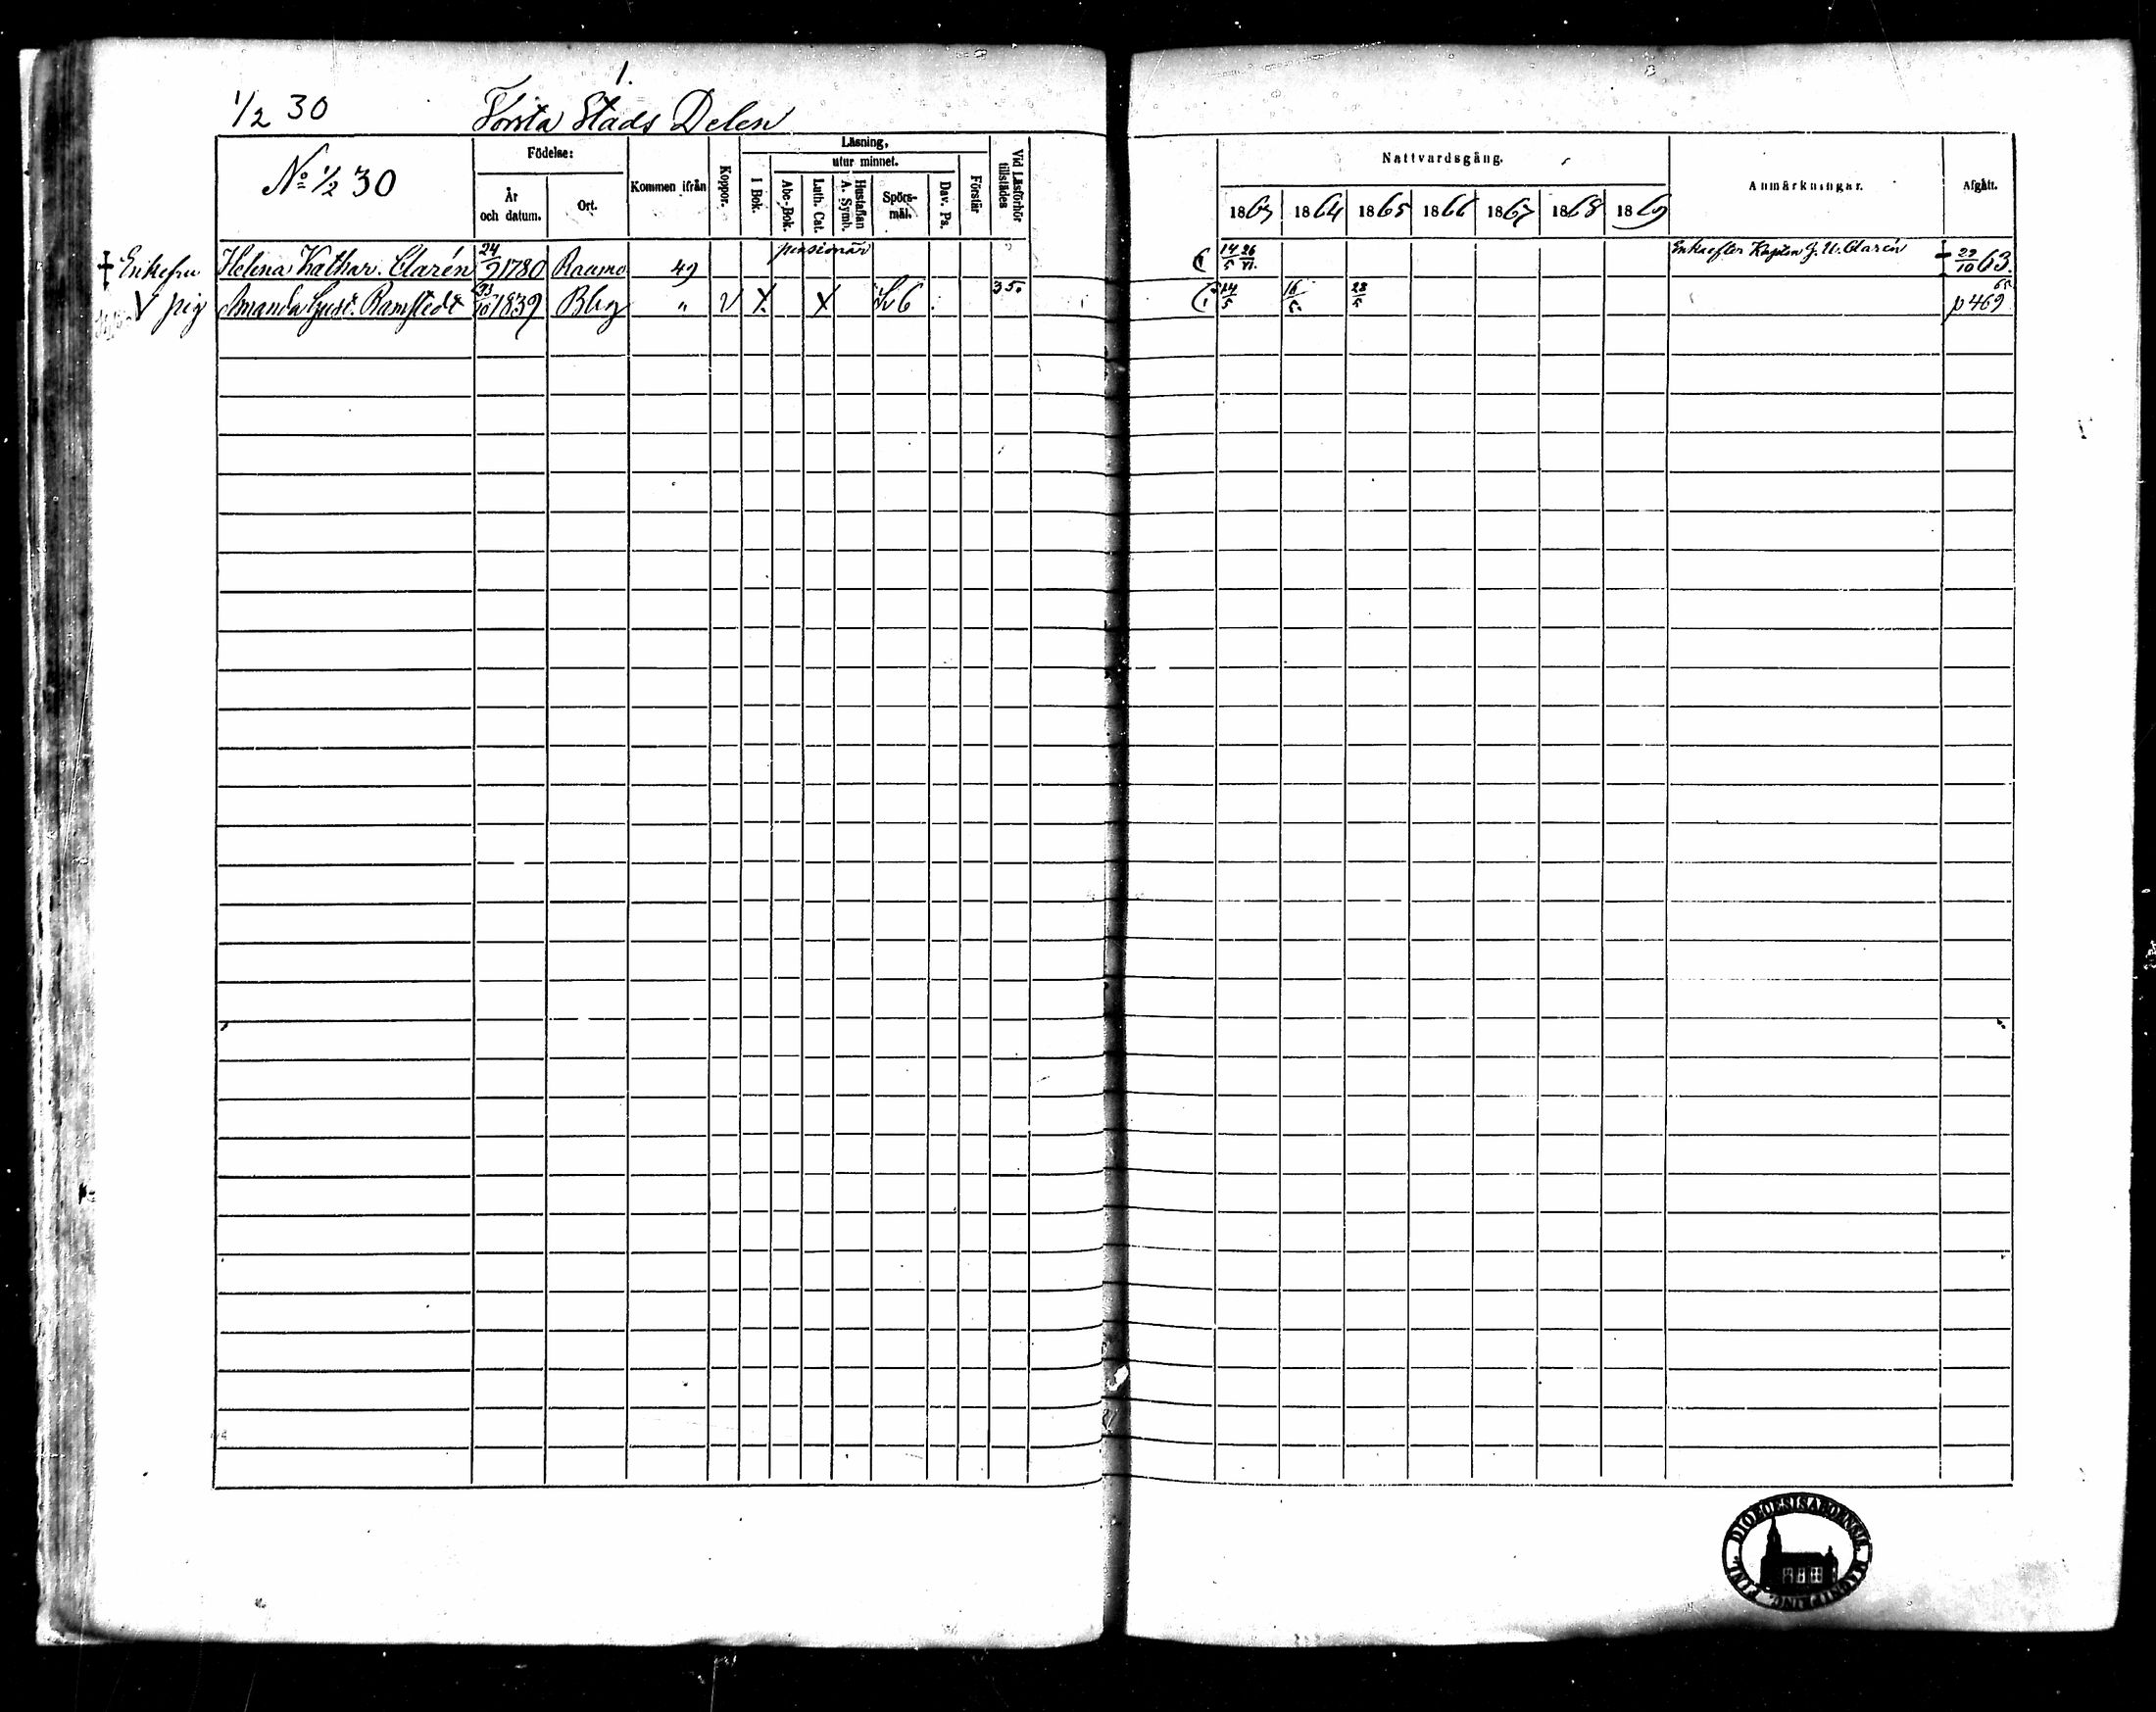 1.
1/2 30 Första Stads Delen
No 1/2 30
Födelse:
År och datum.
Ort.
Kommen ifrån
Koppor.
Läsning,
I Bok.
utur minnet.
Abc-Bok.
Luth. Cat.
Hustaflan A. Symb.
Spörsmål.
Dav. Ps.
Förstår
Vid Läsförhör tillstädes
Nattvardsgång.
1863 1864 1865 1866 1867 1868 1869
Anmärkningar.
Afgått.
† Enkefru Helina Kathar. Clarén 24/9 1780 Raumo 49 pensionär 14/5 26/11. Enka efter Kapten J. U. Clarén † 29/10 63.
V pig Amanda Gust. Ramstedt 1839 Bbg " v X X 6 35. 14/5 16/5. 28/5 65 p 469